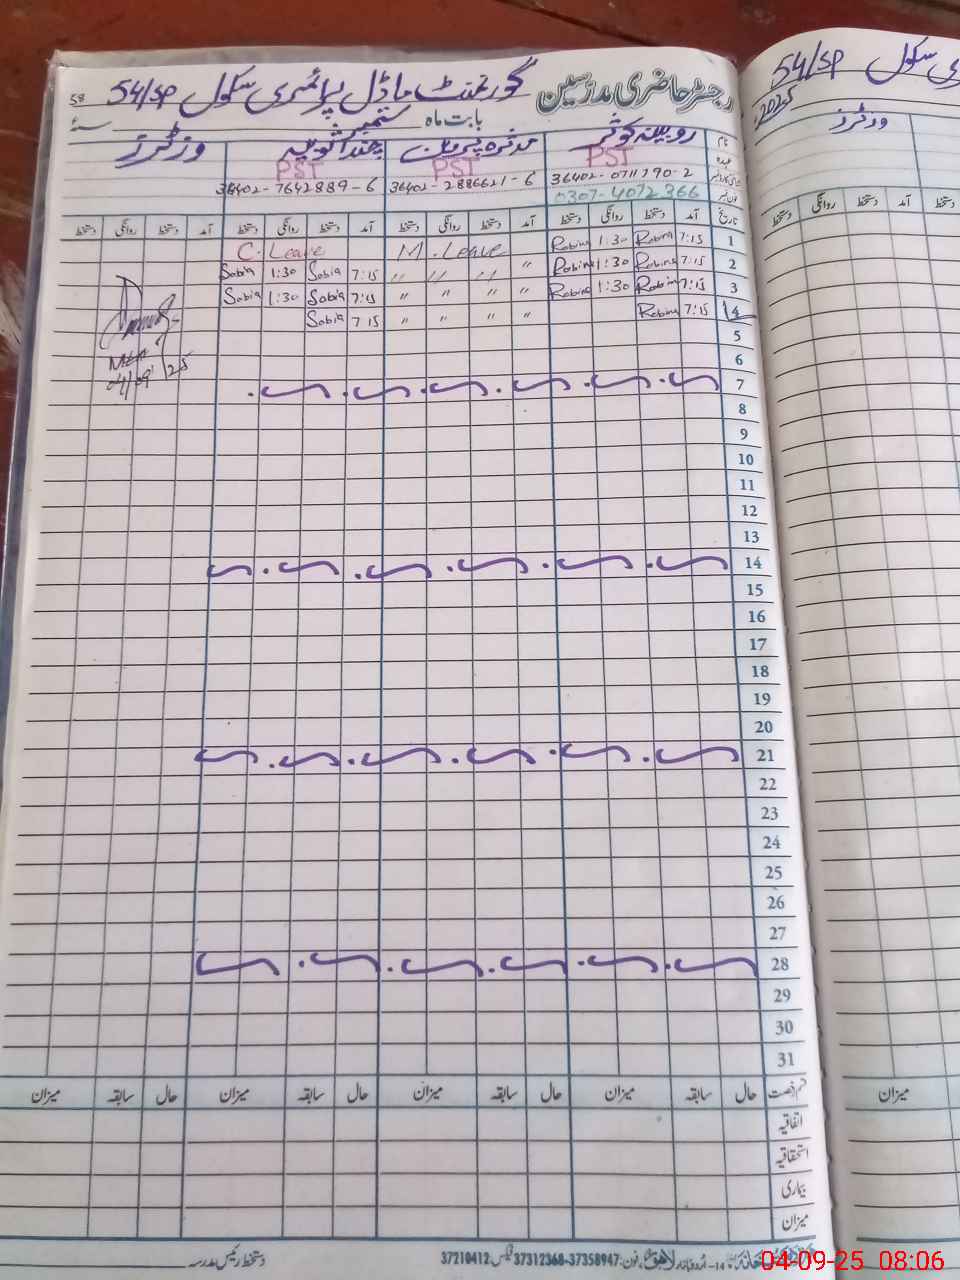 رجسٹر حاضری مدرسین گورنمنٹ ماڈل پرائمری سکول 54/SP 58
بابت ماہ ستمبر سنہ
نام روبینہ کوثر وزٹرز
عہدہ PST PST PST
36402-0711790-2 36402-2886621-6 36402-7642889-6
فون نمبر 0307-4072366
تاریخ آمد دستخط روانگی دستخط آمد دستخط روانگی دستخط آمد دستخط روانگی دستخط آمد دستخط روانگی دستخط
1 7:15 Robina 1:30 Robina M. Leave C. Leave
2 7:15 Robina 1:30 Robina " " " " 7:15 Sobia 1:30 Sobia
3 7:15 Robina 1:30 Robina " " " " 7:15 Sobia 1:30 Sobia
4 7:15 Robina " " " " 7 15 Sobia
5
6
7
8
9
10
11
12
13
14
15
16
17
18
19
20
21
22
23
24
25
26
27
28
29
30
31
MEA
04/09/25
قسم رخصت حال سابقہ میزان حال سابقہ میزان حال سابقہ میزان حال سابقہ میزان
اتفاقیہ
استحقاقیہ
بیماری
میزان
14-اردو بازار لاہور فون: 37358947-37312368 فیکس: 37210412
دستخط رئیس مدرسہ
54/SP سکول
2025
وزٹرز
دستخط آمد دستخط روانگی دستخط
میزان
04-09-25 08:06